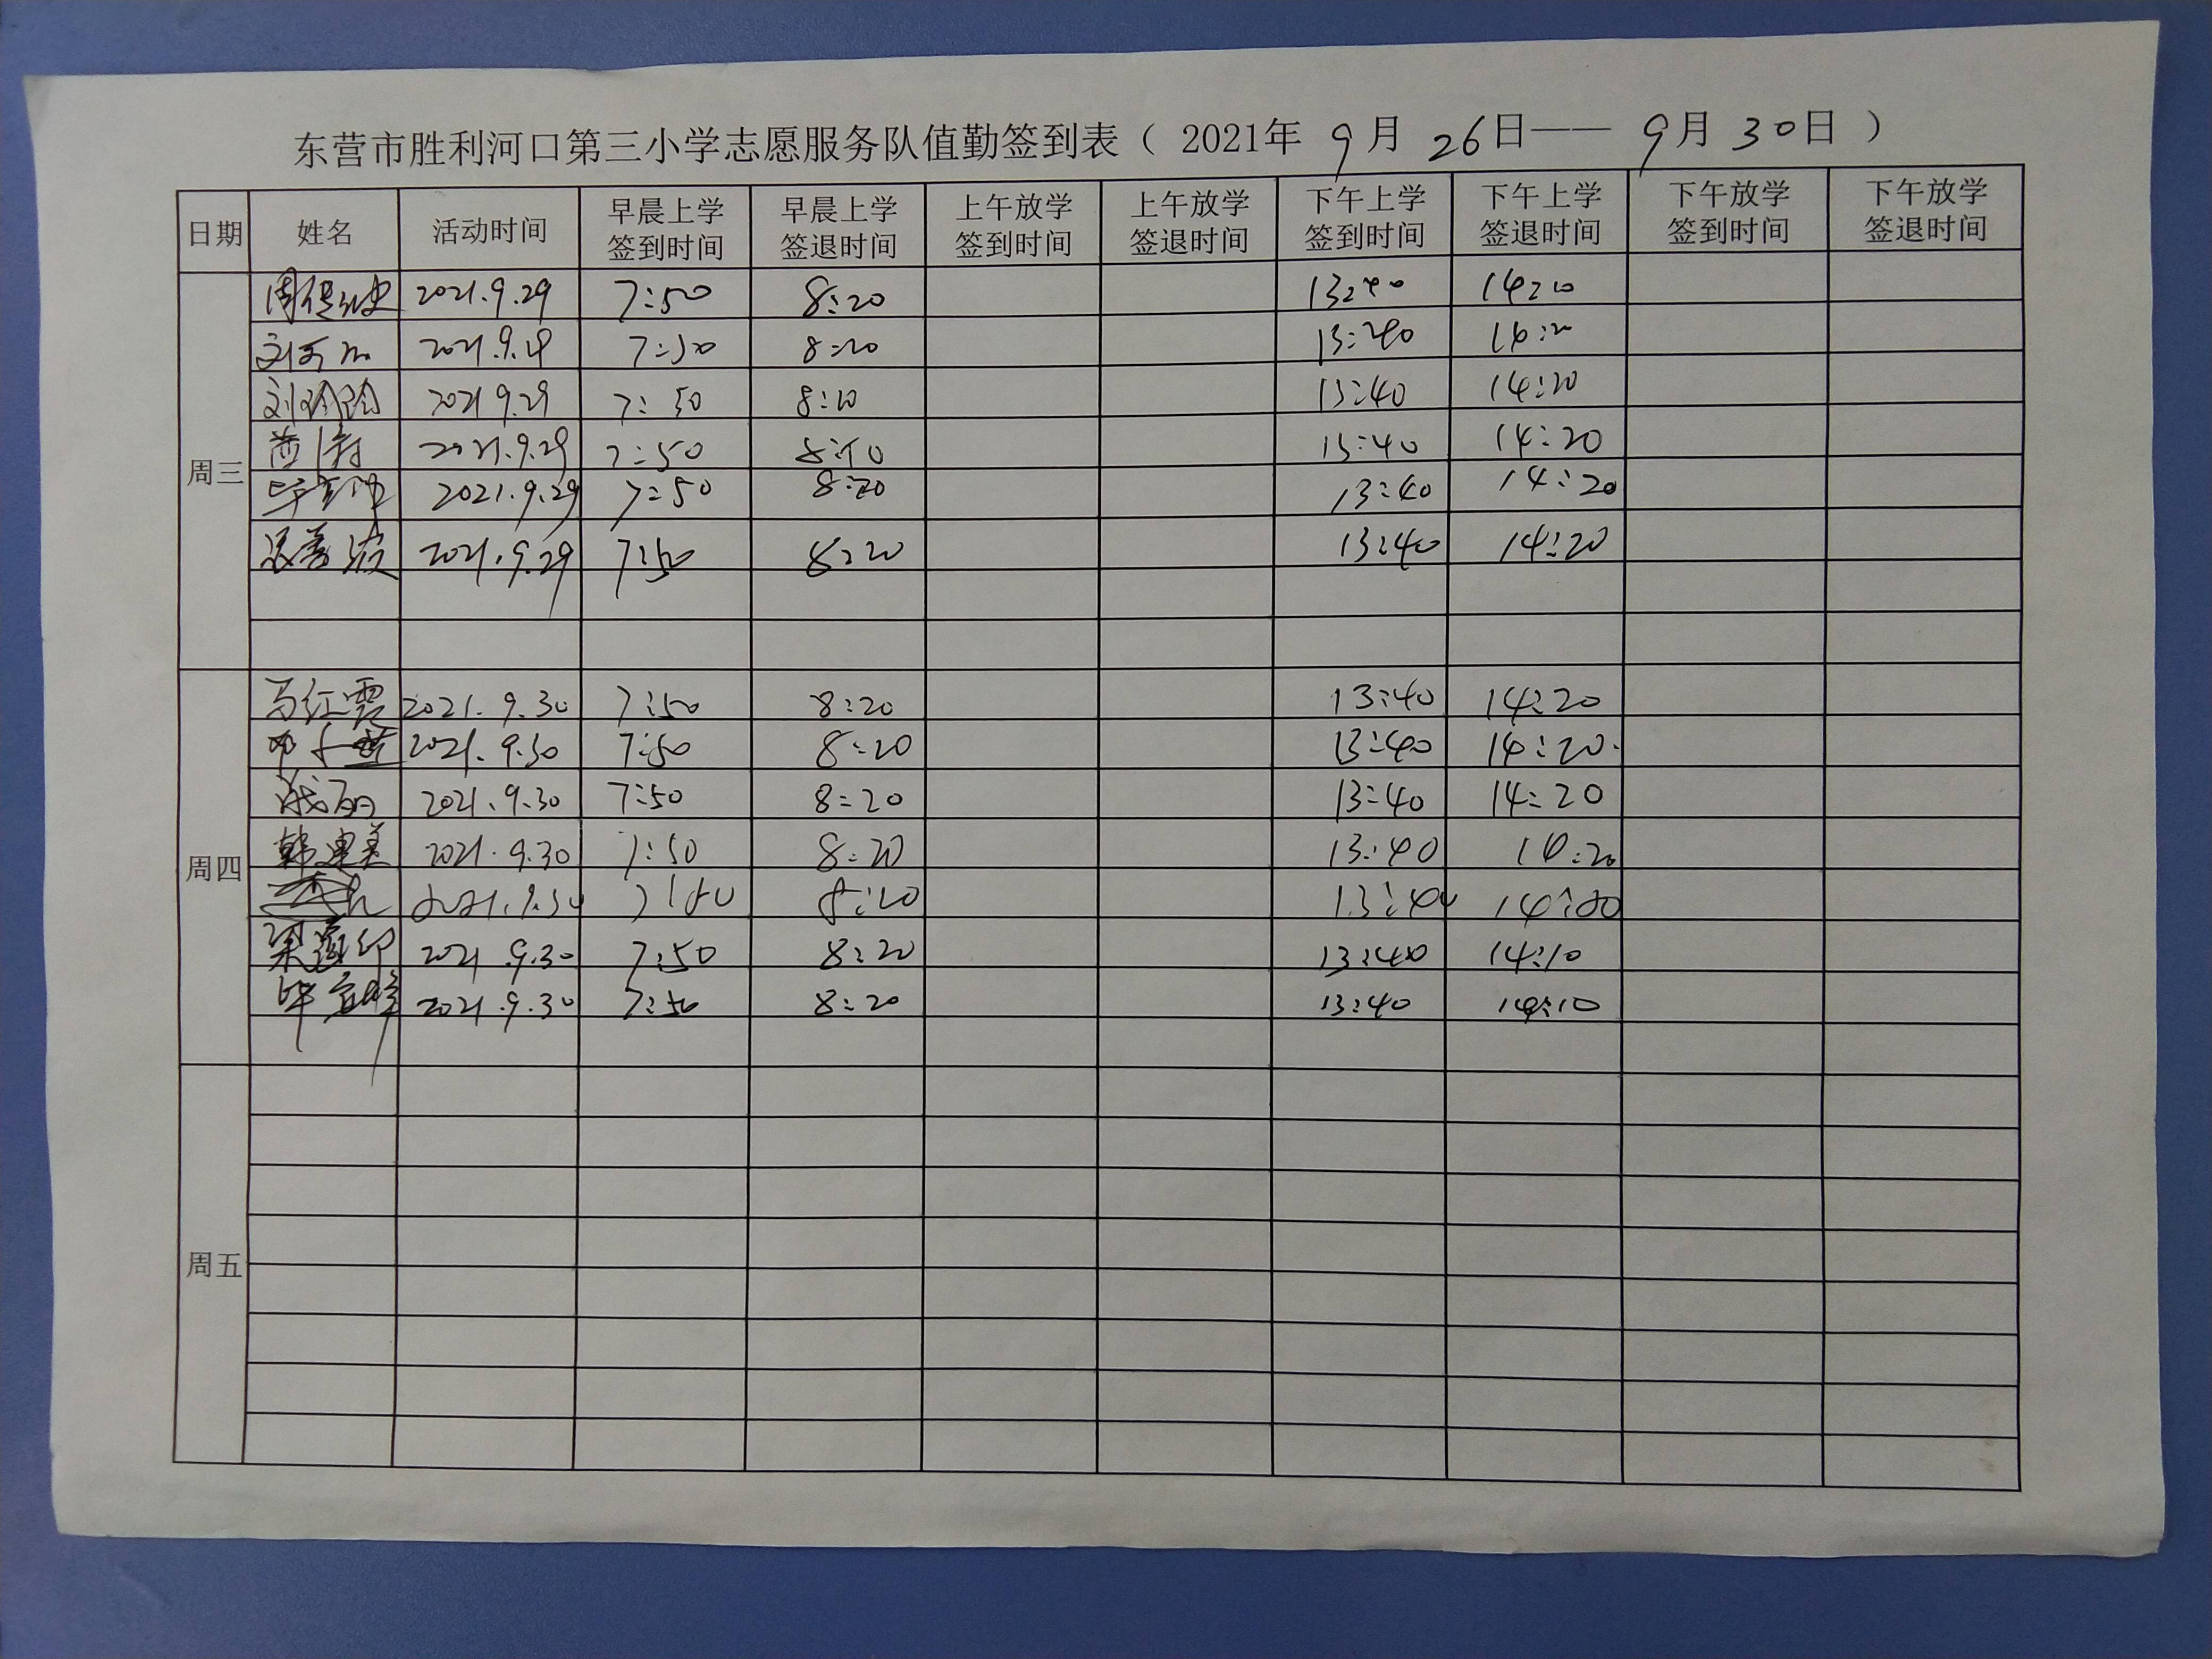 东营市胜利河口第三小学志愿服务队值勤签到表（ 2021年 9月 26日—— 9月 30日 ）
日期 姓名 活动时间 早晨上学签到时间 早晨上学签退时间 上午放学签到时间 上午放学签退时间 下午上学签到时间 下午上学签退时间 下午放学签到时间 下午放学签退时间
周三
2021.9.29 7:50 8:20 13:40 14:20
2021.9.29 7:50 8:20 13:40 14:20
刘玲玲 2021 9.29 7:50 8:20 13:40 14:20
2021.9.29 7:50 13:40 14:20
2021.9.29 7:50 8:20 13:40 14:20
2021.9.29 7:50 8:20 13:40 14:20
周四
马红霞 2021.9.30 7:50 8:20 13:40 14:20
2021.9.30 7:50 8:20 13:40 14:20
2021.9.30 7:50 8:20 13:40 14:20
韩建美 2021.9.30 7:50 8:20 13:40 14:20
2021.9.30 7:50 8:20 13:40 14:20
2021.9.30 7:50 8:20 13:40 14:10
2021.9.30 7:50 8:20 13:40 14:10
周五